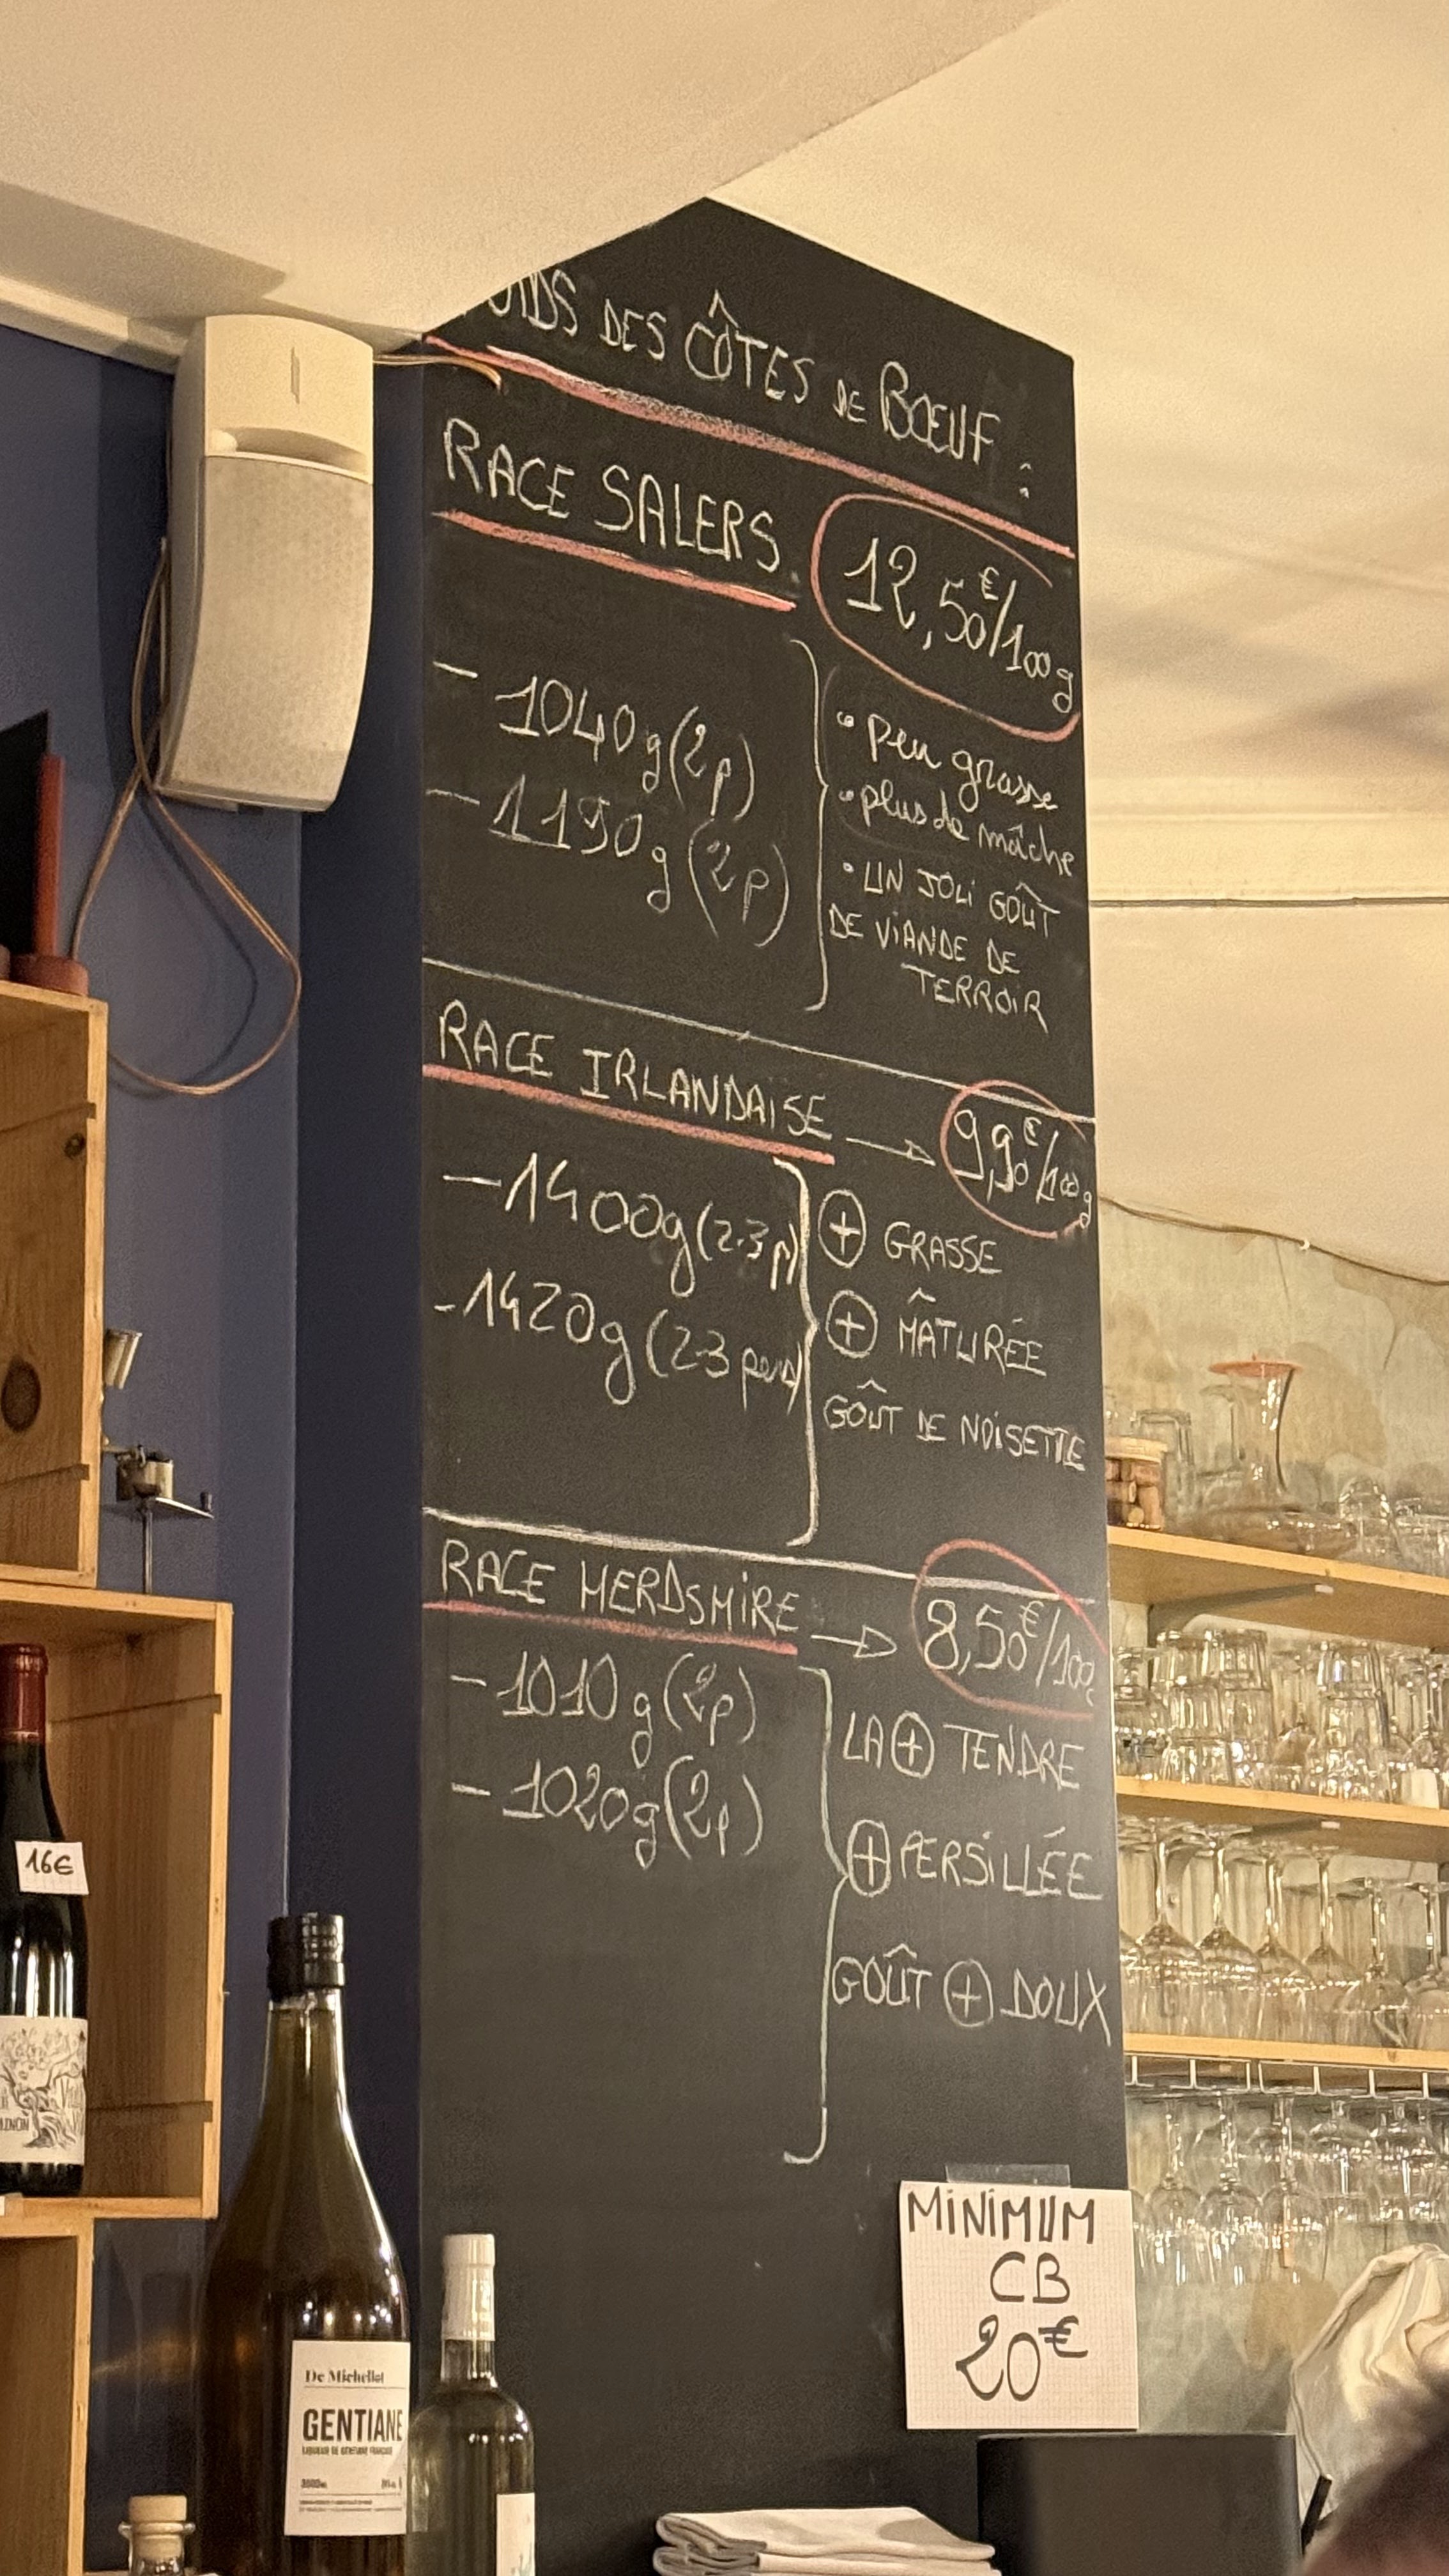 DES CÔTES DE BŒUF :
RACE SALERS
12,50€/100g
- 1040g (2p)
- 1190g (2p)
• peu grasse
• plus de mâche
• UN JOLI GOÛT
DE VIANDE DE
TERROIR
RACE IRLANDAISE → 9,90€/100g
- 1400g (2-3p)
- 1420g (2-3 pers)
⊕ GRASSE
⊕ MÂTURÉE
GOÛT DE NOISETTE
RACE HERDSHIRE → 8,50€/100g
- 1010g (2p)
- 1020g (2p)
LA ⊕ TENDRE
⊕ PERSILLÉE
GOÛT ⊕ DOUX
MINIMUM
CB
20€
16€
De Michellot
GENTIANE